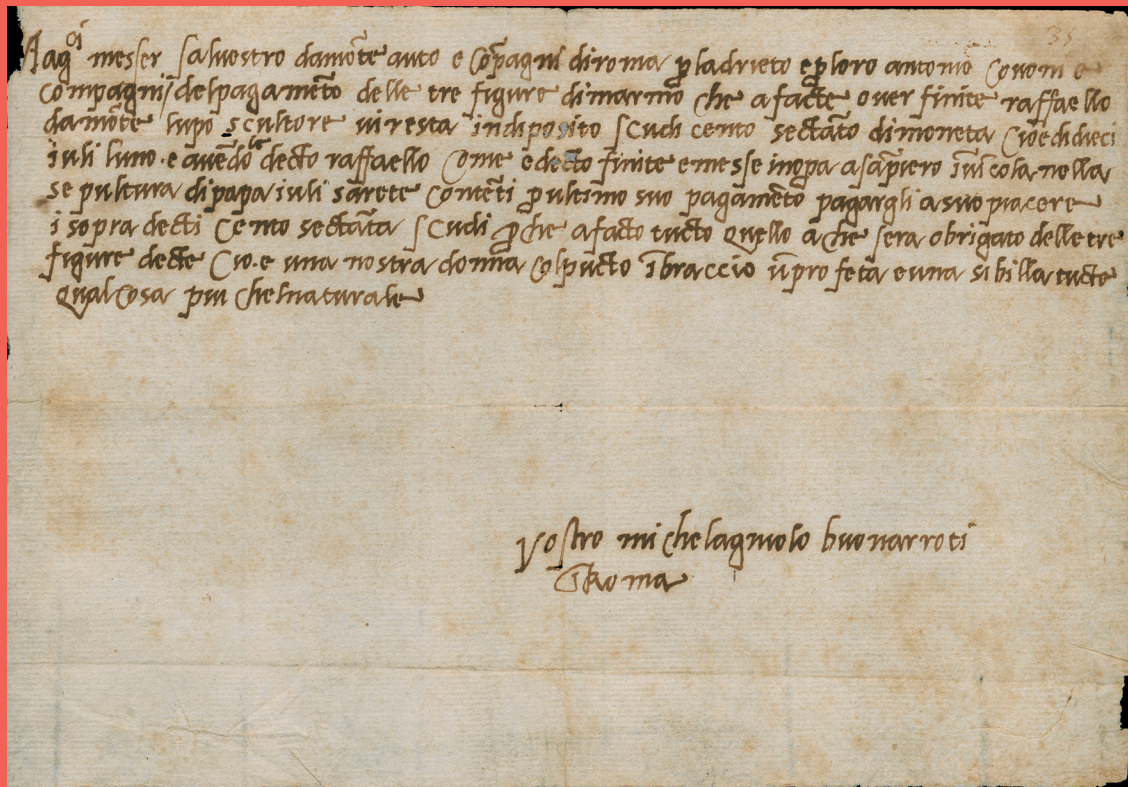 Mag.ci messer salvestro damōte auto e cōpagni diroma p ladrieto e p loro antonio covoni e
compagni/ delpagamēto delle tre figure dimarmo che a facte over finite raffaello
damōte lupo scultore vi resta indiposito scudi cento sectāta dimoneta cioe didieci
iuli luno · e avēdole decto raffaello come e decto finite e messe inopa a sāpiero īvīcola nella
sepultura dipapa iuli sarete cōtēti p ultimo suo pagamēto pagargli a suo piacere
i sopra decti cento sectāta scudi p che a facto tucto quello a che sera obrigato delle tre
figure decte cio · e una nostra donna col pucto ībraccio ū profeta e una sibilla tucte
qualcosa piu chelnaturale
Vostro michelagniolo buonarroti
ī Roma